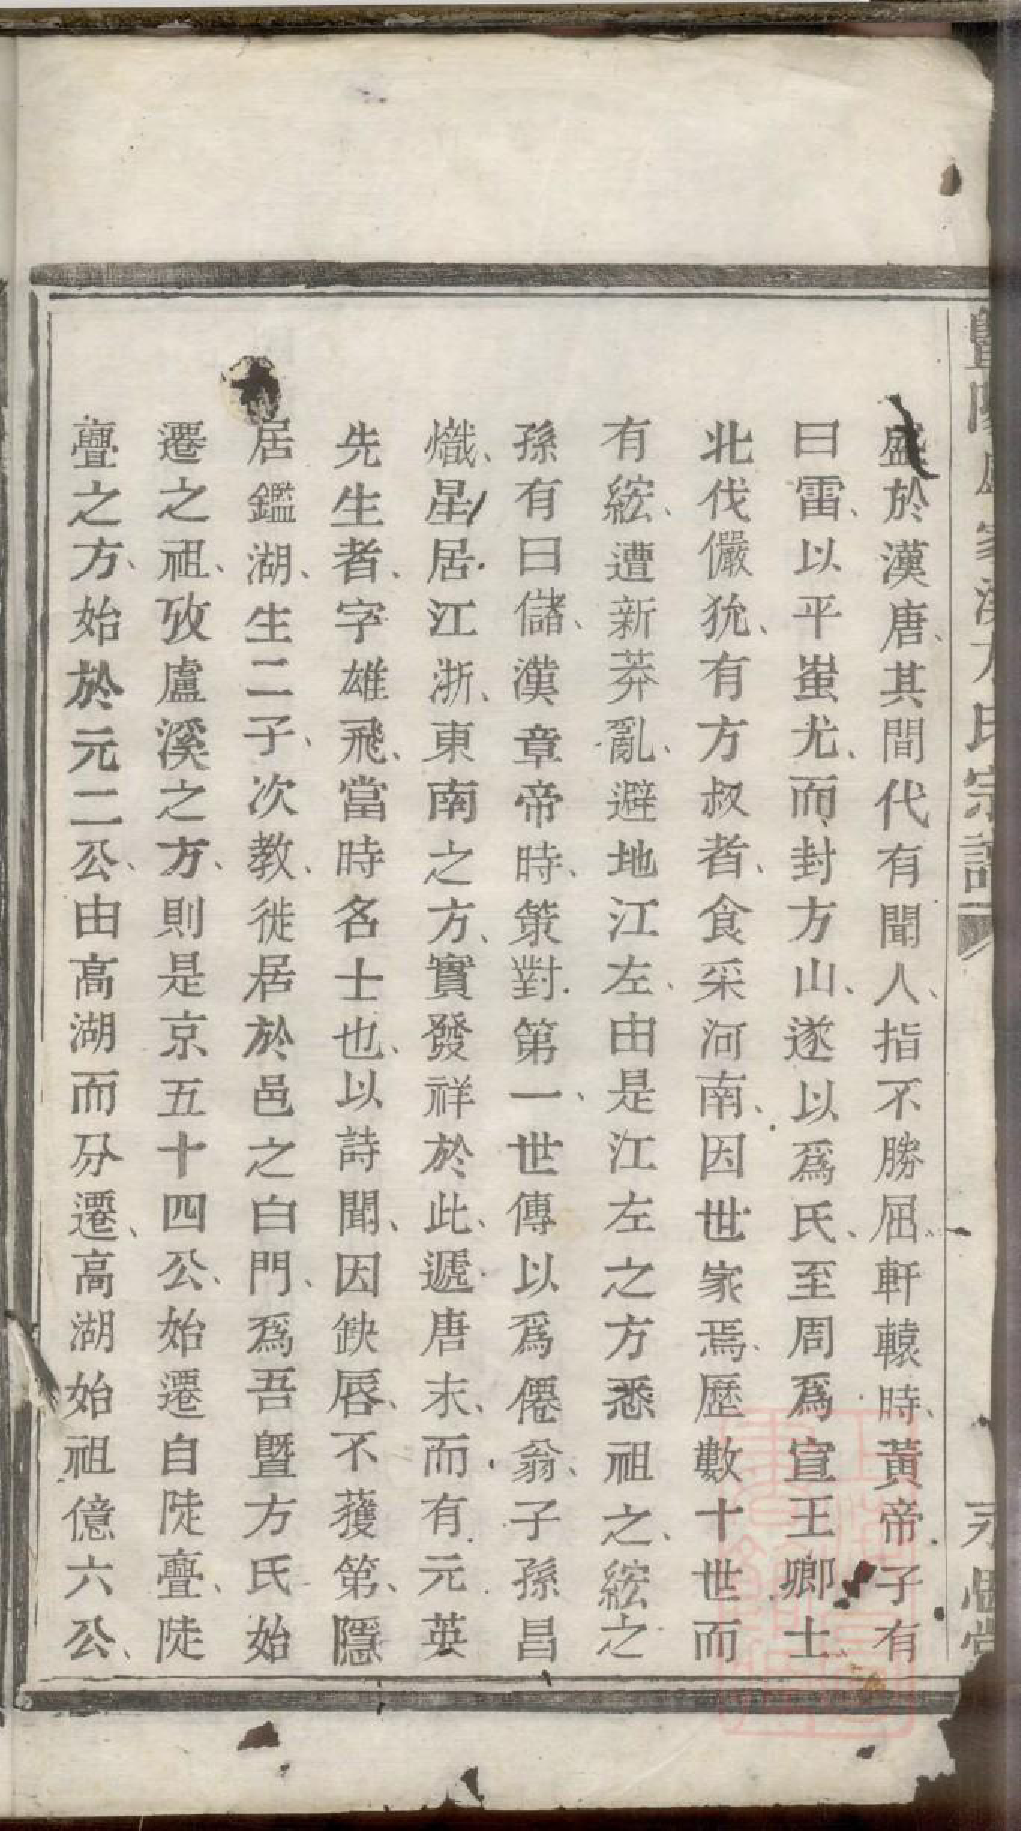 暨陽盧家溪方氏宗譜
永思堂
盛於漢唐、其間代有聞人、指不勝屈、軒轅時、黃帝子有
曰雷、以平蚩尤、而封方山、遂以爲氏、至周爲宣王卿士、
北伐儼狁、有方叔者、食采河南、因世家焉、歷數十世而
有綋、遭新莽亂、避地江左、由是江左之方悉祖之、綋之
孫有曰儲、漢章帝時、策對第一、世傳以爲僊翁、子孫昌
熾、星居江浙、東南之方、實發祥於此、遞唐末、而有元英
先生者、字雄飛、當時名士也、以詩聞、因缺唇、不獲第、隱
居鑑湖、生二子、次教、徙居於邑之白門、爲吾暨方氏始
遷之祖、攷盧溪之方、則是京五十四公、始遷自陡亹、陡
亹之方、始於元二公、由高湖而分遷、高湖始祖億六公、